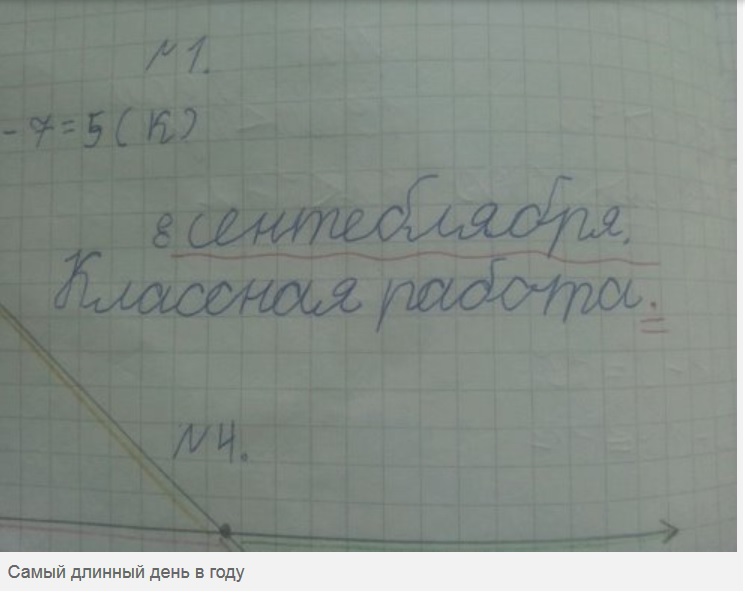 N 1.
- 7 = 5 ( К )
8 сентеблября.
Классная работа.
N 4.
Самый длинный день в году